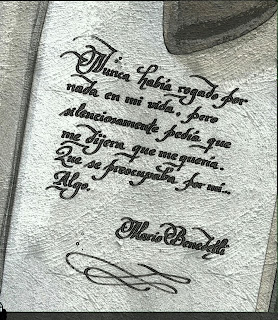 Nunca había rogado por
nada en mi vida, pero
silenciosamente pedía que
me dijera que me quería.
Que se preocupaba por mi..
Algo.
Mario Benedetti